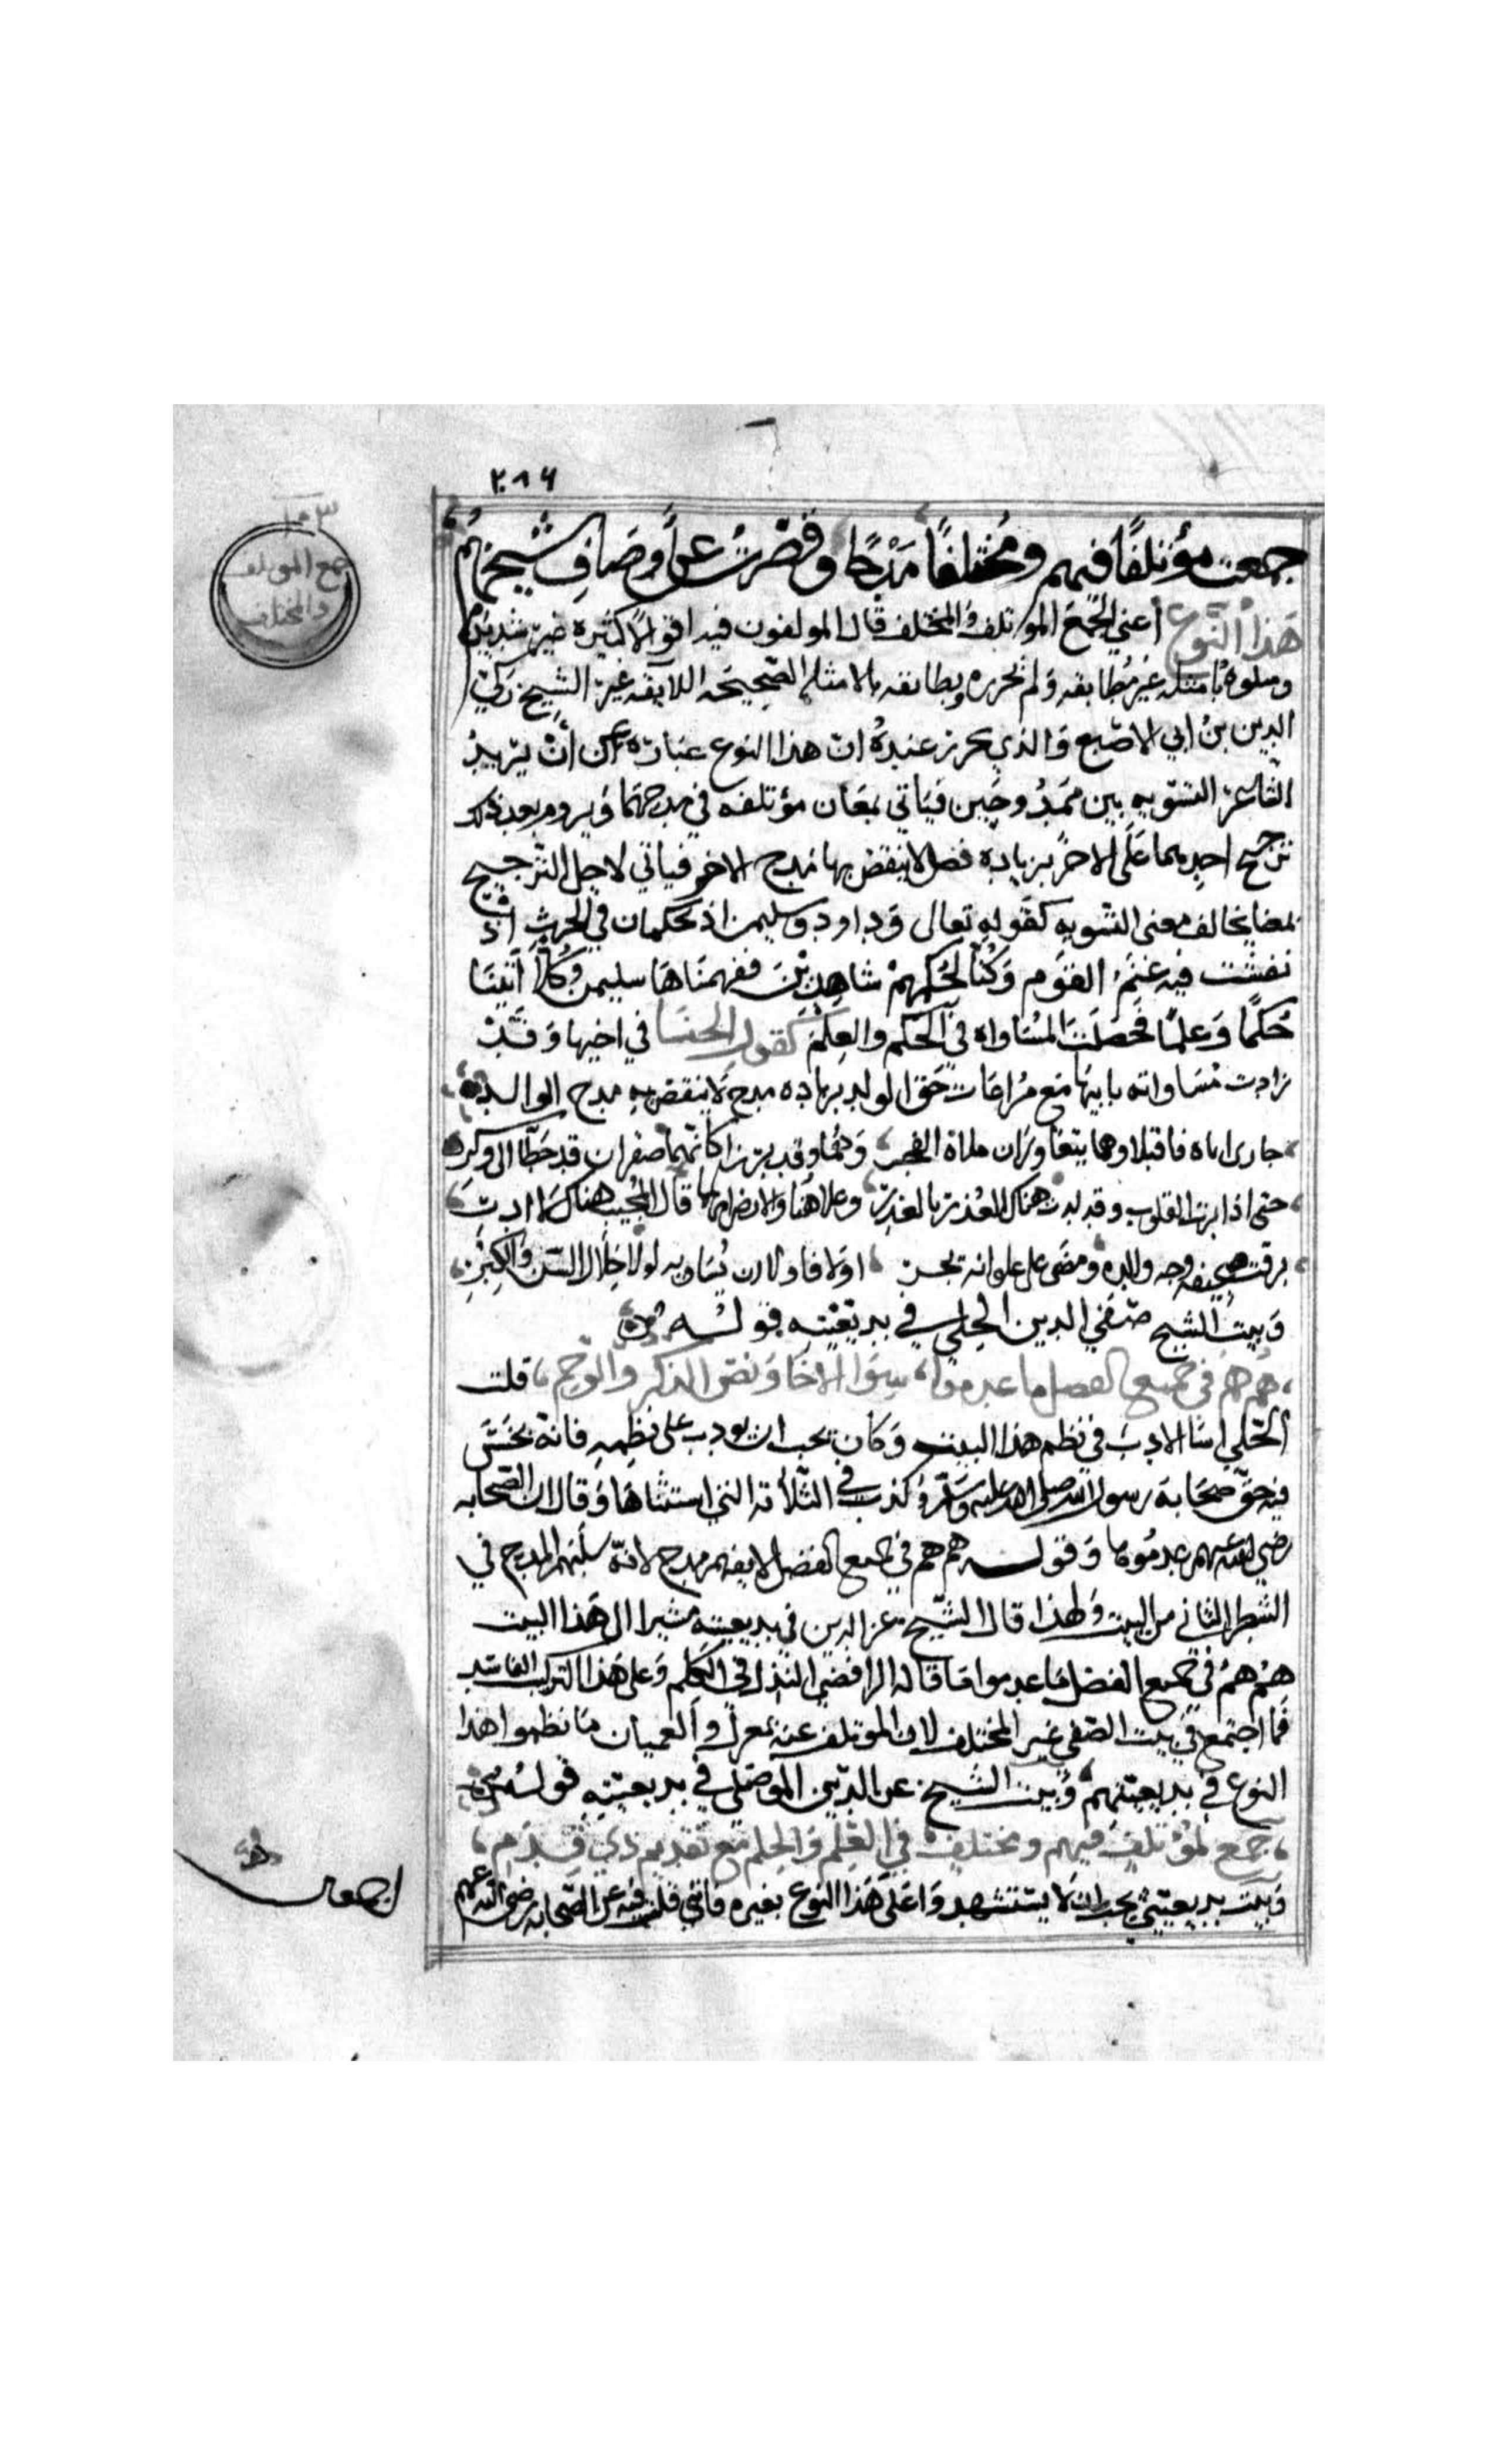 ٢١٦
جمع المؤتلف
والمختلف
جمعت مؤتلفًا فيهم ومُختلفًا مَدْحًا وقصّرتُ عن أوصَافِ شيخهمُ
هَذا النَّوع أعني الجَمعَ المؤتلف والمختلف قال المولفون فيه اقوالًا كثيرة غير سَديدَة
ومثلوهُ بامثله غير مُطابقه وَلم تحرره وبطابقه بالامثله الصَّحِيحَه اللآيقه غيرُ الشيخ زكي
الدين بنُ ابي الاصّبع وَالذي تحرر عندهُ ان هذا النوع عبَارَة عن أنْ يُريد
الشاعر التسّويه بين ممَدُوحَين فيَاتي بمعَان مؤتلفه في مدحهمَا وَيروم بعد ذلك
ترجيح احدهما عَلَى الاخر بزيادة فضل لا ينقض بها مَدح الاخر فياتي لاجل الترجيح
بمعنا يخالف معنى التسّويه كقولهِ تعالى وَداود وسليمن اذ يحكمان في الحَرثِ اذ
نفشت فيه غنَمُ القوَم وَكُنا لحُكمِهِمْ شاهِدِينَ ففهمنَاهَا سليمن وَكُلًّا آتيْنَا
حُكمًا وَعلمًا فحَصَلَت المسَاواه في الحُكم والعِلمْ كقول الخنسا في اخيها وَقَدْ
زادت مُسَاواته بابيهَا مَع مُراعَات حَق الوالد بزياده مدح لا ينقض به مدح الوالد
جارى اباه فاقبلا وهما يتعَاوَران ملاة الفخر وَهُمَا وقد برزا كانّهما صقران قد حَطّا الى وكر
حتى اذا نزت القلوب وقد لزت هناك العُذر بالعُذر وعلا هُتاف الناس ايهما قال المجيب هناك لا ادرِي
برقت صحيفه وجه والده ومضَى على غلوائه يجري اولا فاولا ان يُسَاويه لولا جلال السّن وَالكِبَر
وَبيتُ الشيخ صَفي الدين الحِلي في بديعّيتهِ قولـــه
هُم هُم في جميع الفضل ما عدموا سِوَا الاخَاءِ وَنصّ الذكر والرّحم قلت
الحِّلي اسَا الادبَ في نظم هذا البيت وَكان يجب ان يودب على نظمِهِ فانهُ بخسَ
فيه حَقّ صحَابة رسول الله صلى الله عليه وسَلم وكذب في الثلاثة التي استثنَاهَا وَقال ان الصّحابه
رضي الله عنهم عدمُوها وَقولــه هم هم في جميع الفضل لا يفهم مدح لانهُ سَلبَهم المدح في
الشطر الثاني من البيت وَلهذا قال الشّيخ عز الدين في بديعيته مشيرا الى هَذا البيت
هُمْ هُمْ في جميع الفضل مَا عدموا مَا قَاله الرافضيُ النذل في الكلِم وَعلى هَذا التركيب الفاسد
فما اجتمع في بيت الصّفي غير المختلف لان الموتلف عنهُ بمعزل والعميان مَا نظموا هذا
النوع في بديعيتهمْ وَبيت الشّيخ عز الدّين الموصَلي في بديعيتهِ قولُه
جمع لمُؤتلفٍ فيهم ومختلفٍ في العِلم وَالحِلم مَع تقديم ذي قِدَم
وَبيَت بديعيّتي يجب ان لا يستشهد عَلى هَذا النوع بغيره فانني قلت فيه عن الصّحابه رضي الله عنهم
اجمعين